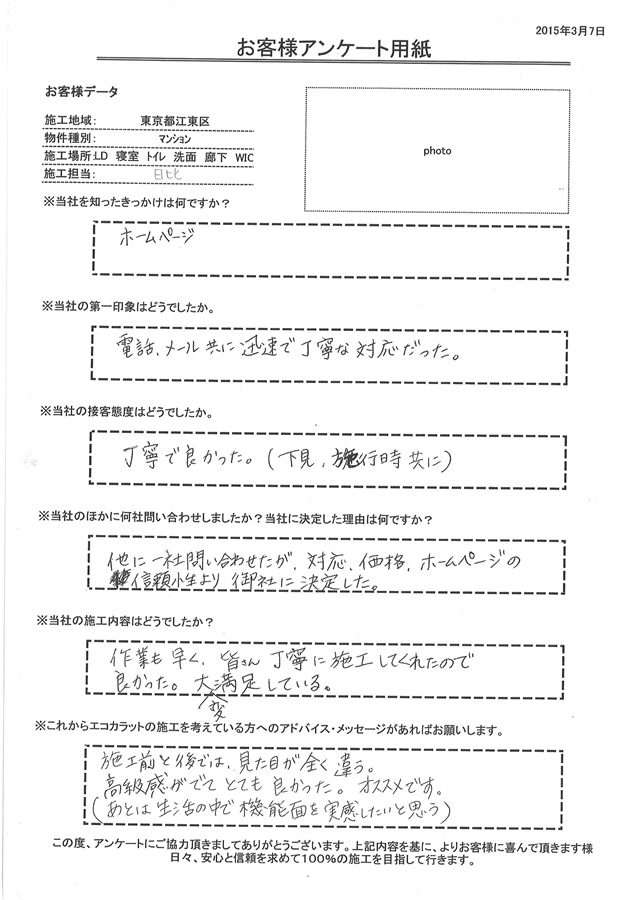 2015年3月7日
お客様アンケート用紙
お客様データ
施工地域： 東京都江東区
物件種別： マンション
施工場所:LD 寝室 トイレ 洗面 廊下 WIC
施工担当： 日比
photo
※当社を知ったきっかけは何ですか？
ホームページ
※当社の第一印象はどうでしたか。
電話、メール共に迅速で丁寧な対応だった。
※当社の接客態度はどうでしたか。
丁寧で良かった。(下見，施行時共に)
※当社のほかに何社問い合わせしましたか？当社に決定した理由は何ですか？
他に一社問い合わせたが、対応、価格，ホームページの
信頼小生より御社に決定した。
※当社の施工内容はどうでしたか？
作業も早く、皆さん丁寧に施工してくれたので
良かった。大変満足している。
※これからエコカラットの施工を考えている方へのアドバイス・メッセージがあればお願いします。
施工前と後では、見た目が全く違う。
高級感がでてとても良かった。オススメです。
(あとは生活の中で機能面を実感したいと思う)
この度、アンケートにご協力頂きましてありがとうございます。上記内容を基に、よりお客様に喜んで頂きます様
日々、安心と信頼を求めて100%の施工を目指して行きます。